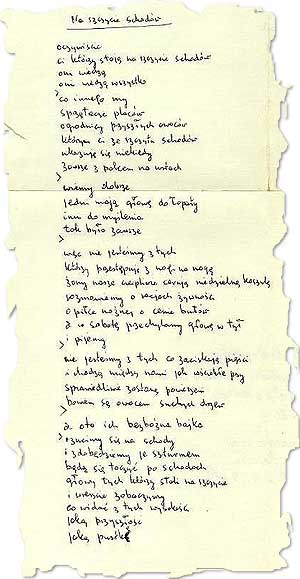 Na szczycie schodów
oczywiście
ci którzy stoją na szczycie schodów
oni wiedzą
oni wiedzą wszystko
co innego my
sprzątacze placów
ogrodnicy przyszłych owoców
którym ci ze szczytu schodów
ukazują się niekiedy
zawsze z palcem na ustach
wiemy dobrze
jedni mają głowę do łopaty
inni do myślenia
tak było zawsze
więc nie jesteśmy z tych
którzy przestępują z nogi na nogę
żony nasze cierpliwe cerują niedzielną koszulę
rozmawiamy o racjach żywności
o piłce nożnej o cenie butów
a w sobotę przechylamy głowę w tył
i pijemy
nie jesteśmy z tych co zaciskają pięści
i chodzą między nami jak wściekłe psy
sprawiedliwie zostaną powieszeni
bowiem są owocem suchych drzew
a oto ich bezbożna bajka
rzucimy się na schody
i zdobędziemy je szturmem
będą się toczyć po schodach
głowy tych którzy stali na szczycie
i wreszcie zobaczymy
co widać z tych wysokości
jaką przyszłość
jaką pustkę